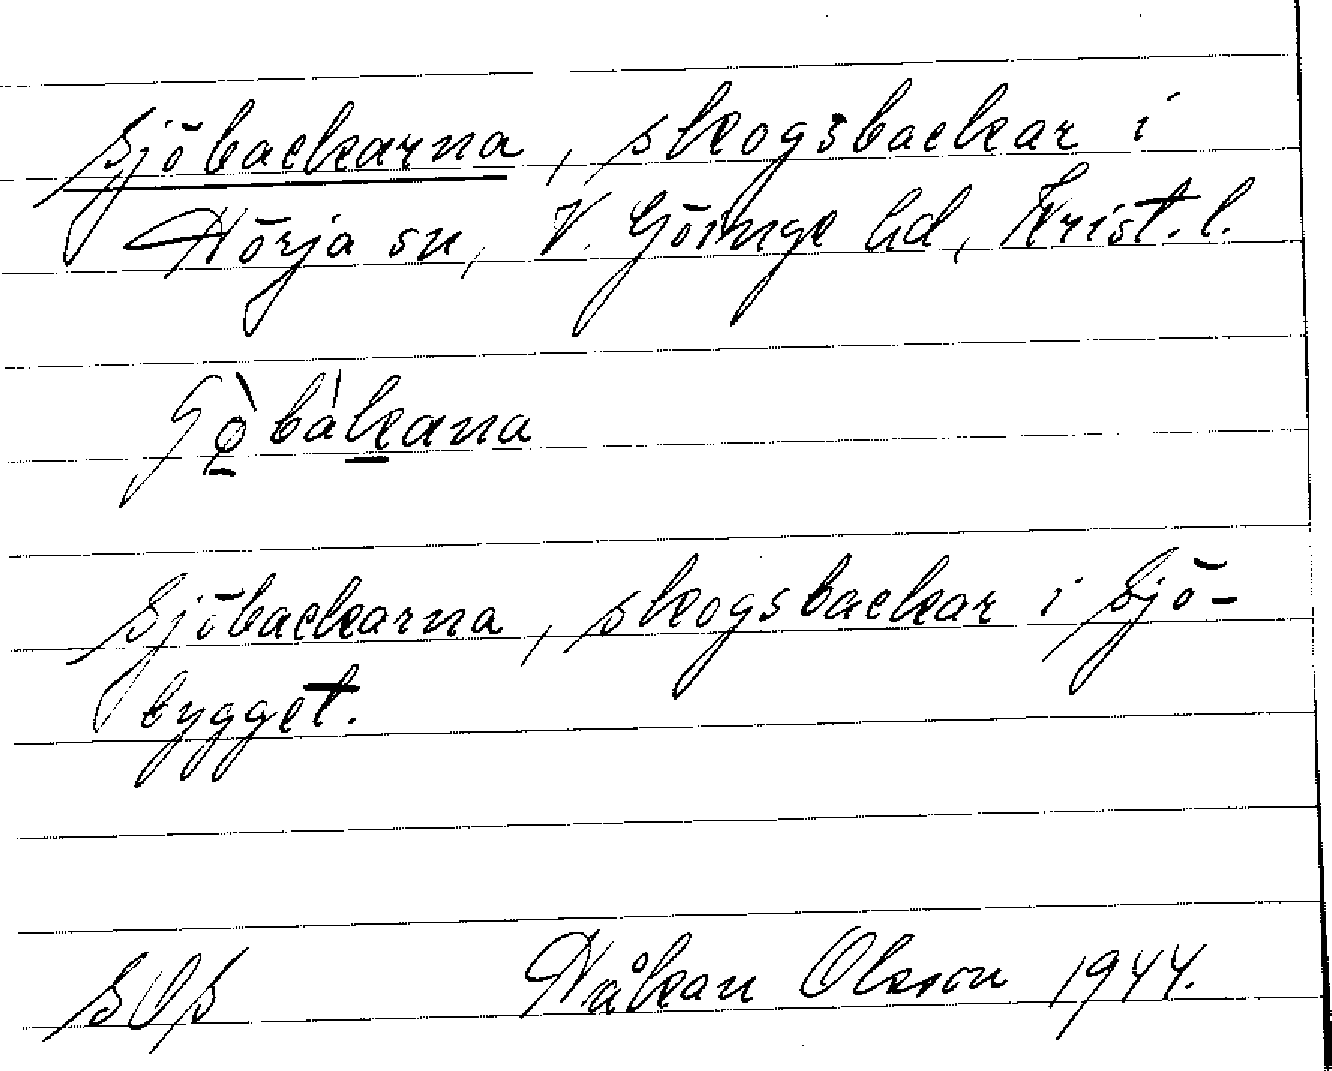 Sjöbackarna, skogsbackar i
Hörja sn, V. Göinge hd, Krist. l.
Sjöbackarna, skogsbackar i Sjö-
bygget.
Håkan Olsson 1944.